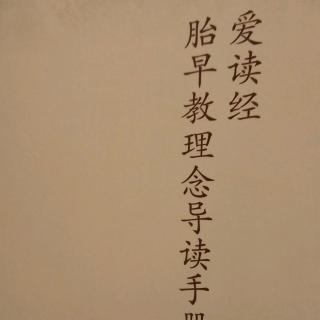 爱读经
胎早教理念导读手册